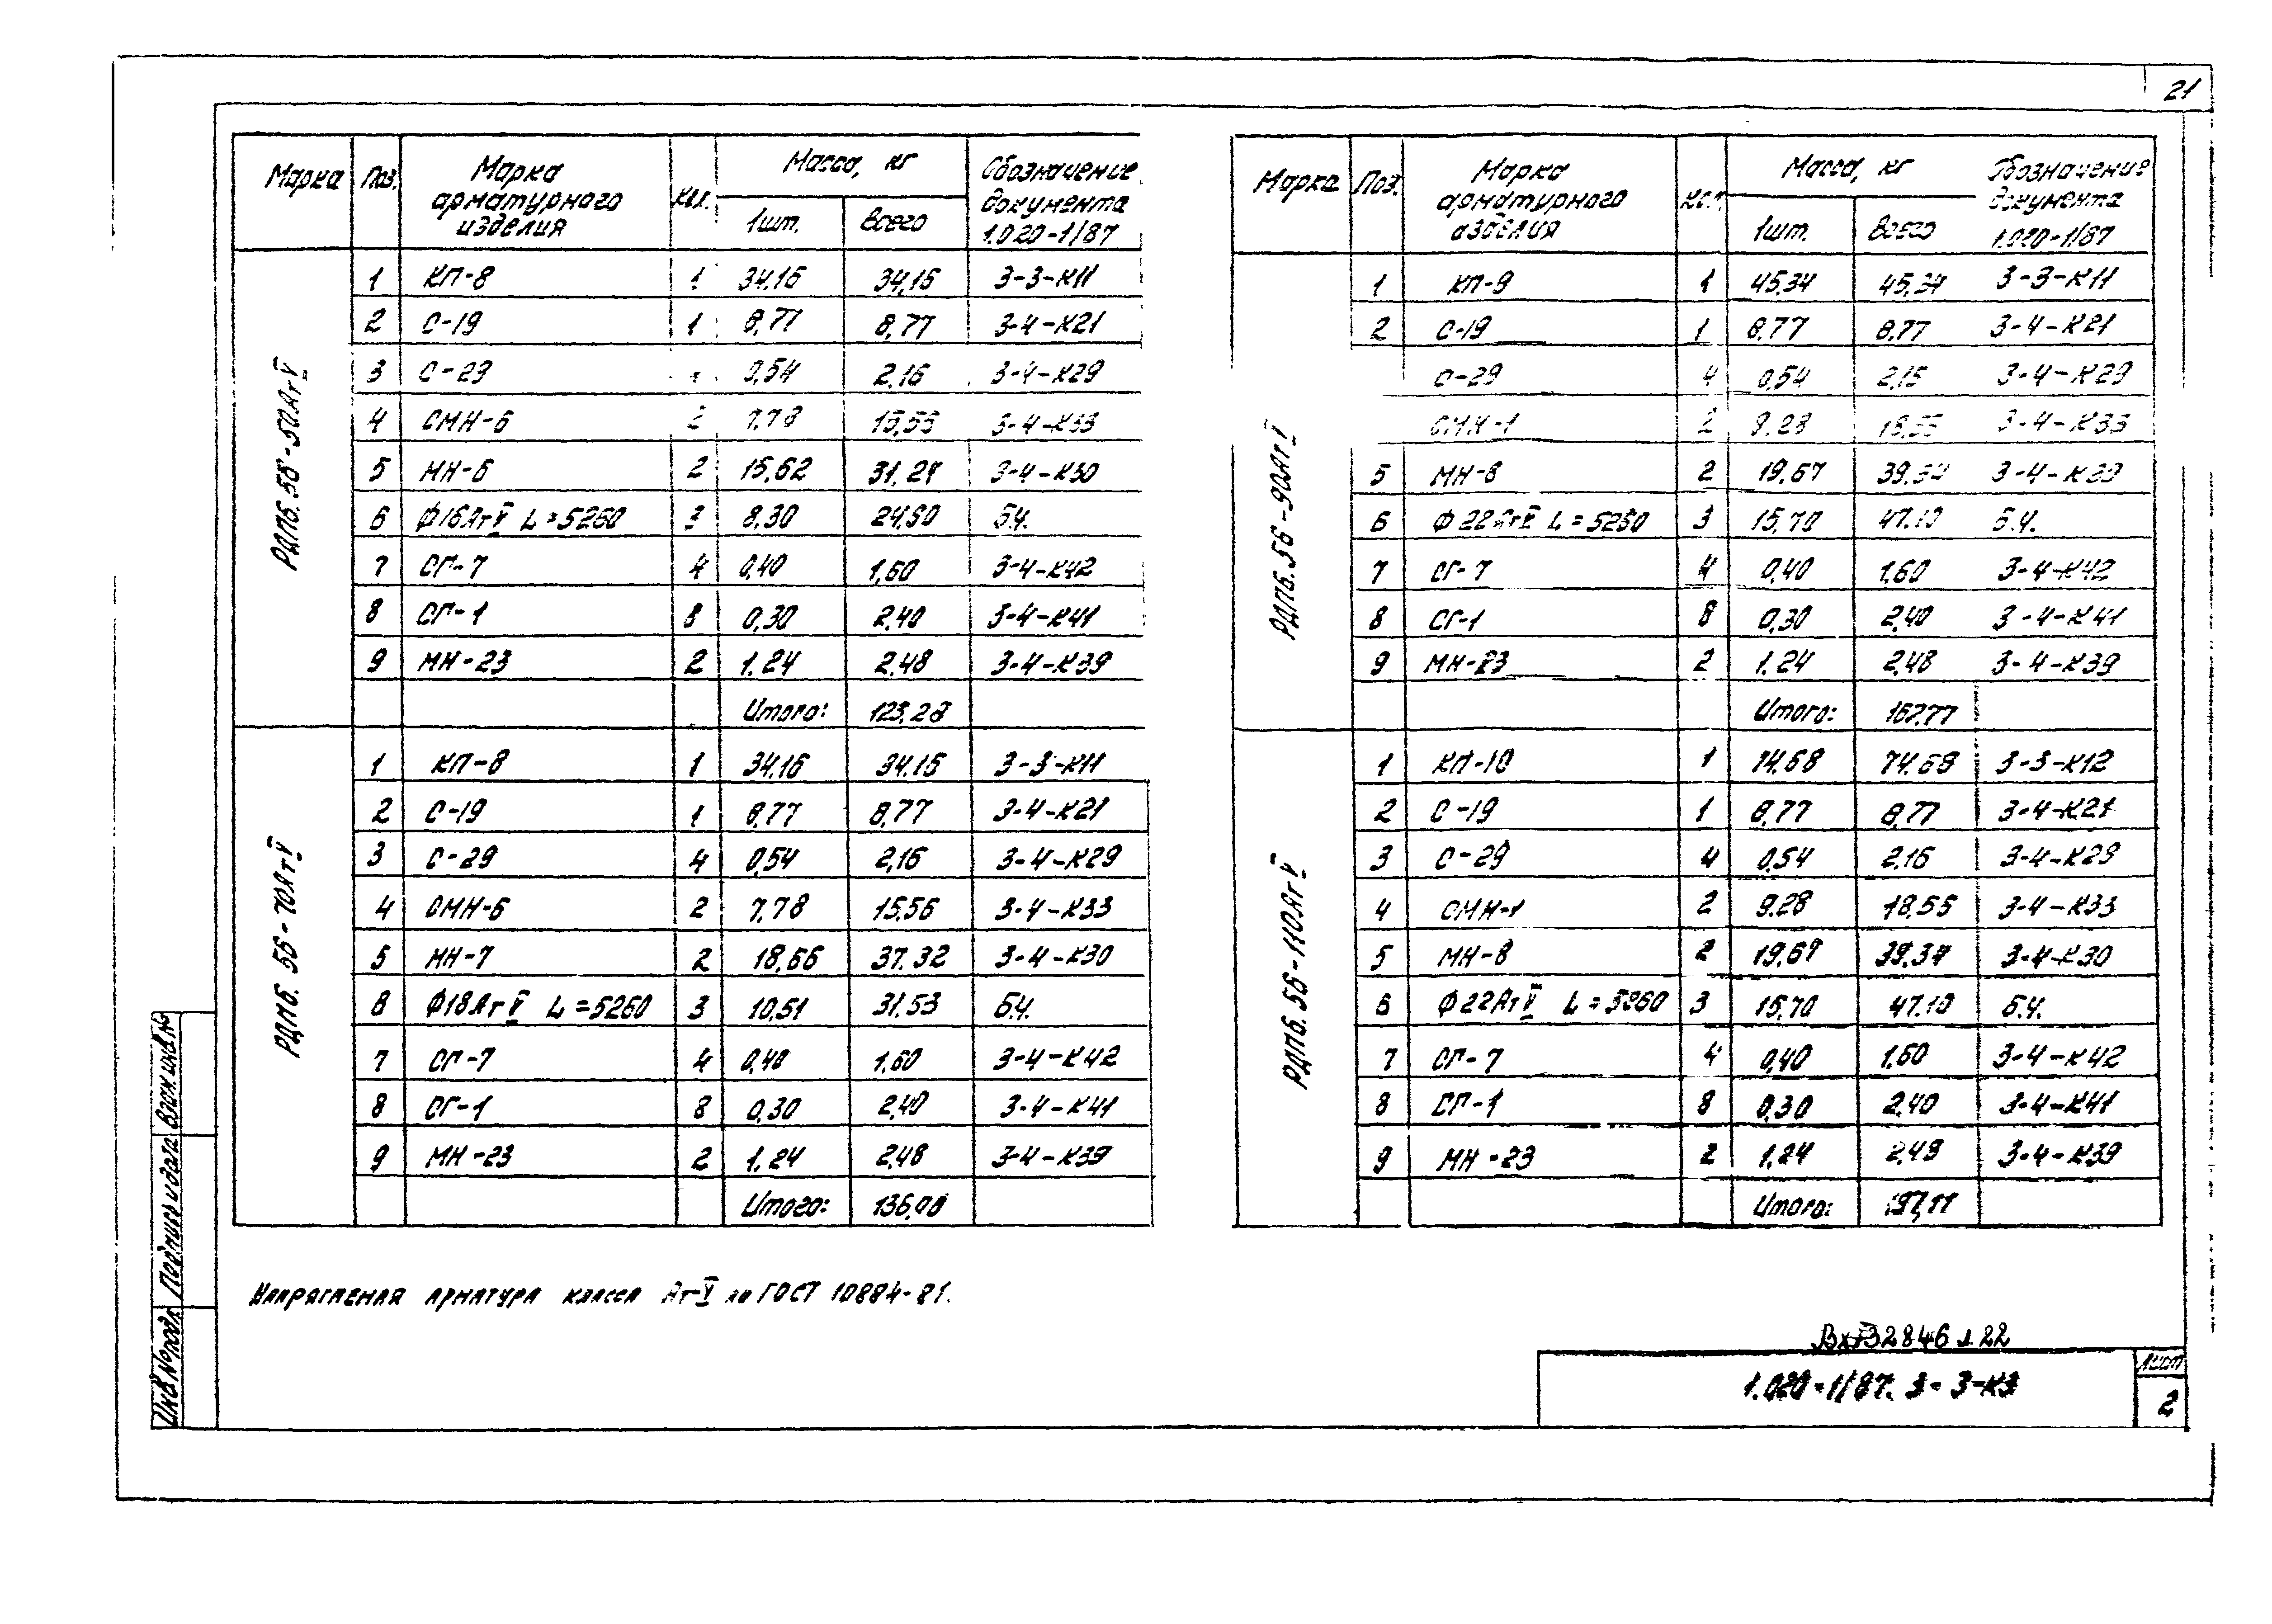 21
Марка Поз. Марка арматурного изделия Кол. Масса, кг 1шт. Всего Обозначение документа 1.020-1/87
РДП6.56-50АтV
1 КП-8 1 34,16 34,16 3-3-К11
2 С-19 1 8,77 8,77 3-4-К21
3 С-29 0,54 2,16 3-4-К29
4 ОМН-6 2 7,78 15,56 3-4-К33
5 МН-6 2 15,62 31,24 3-4-К30
6 Ф16АтV L=5260 3 8,30 24,90 б.ч.
7 СГ-7 4 0,40 1,60 3-4-К42
8 СГ-1 8 0,30 2,40 3-4-К41
9 МН-23 2 1.24 2,48 3-4-К39
Итого: 123,28
РДП6.56-70АтV
1 КП-8 1 34,16 34,16 3-3-К11
2 С-19 1 8,77 8,77 3-4-К21
3 С-29 4 0,54 2,16 3-4-К29
4 ОМН-6 2 7,78 15,56 3-4-К33
5 МН-7 2 18,66 37.32 3-4-К30
8 Ф18АтV L=5260 3 10,51 31,53 б.ч.
7 СГ-7 4 0,40 1,60 3-4-К42
8 СГ-1 8 0,30 2,40 3-4-К41
9 МН-23 2 1,24 2,48 3-4-К39
Итого: 136,08
Марка Поз. Марка арматурного изделия Кол. Масса, кг 1шт. Всего Обозначение документа 1.020-1/87
РДП6.56-90АтV
1 КП-9 1 45,34 45,34 3-3-К11
2 С-19 1 8,77 8,77 3-4-К21
С-29 4 0,54 2,16 3-4-К29
ОМН-1 2 9.28 18,56 3-4-К33
5 МН-8 2 19,67 39,34 3-4-К30
6 Ф22АтV L=5260 3 15,70 47.10 б.ч.
7 СГ-7 4 0,40 1,60 3-4-К42
8 СГ-1 8 0,30 2,40 3-4-К41
9 МН-23 2 1.24 2,48 3-4-К39
Итого: 167,77
РДП6.56-110АтV
1 КП-10 1 74,68 74,68 3-3-К12
2 С-19 1 8,77 8,77 3-4-К21
3 С-29 4 0,54 2,16 3-4-К29
4 ОМН-1 2 9.28 18,56 3-4-К33
5 МН-8 2 19,67 39,34 3-4-К30
6 Ф22АтV L=5260 3 15,70 47.10 б.ч.
7 СГ-7 4 0,40 1,60 3-4-К42
8 СГ-1 8 0,30 2,40 3-4-К41
9 МН-23 2 1,24 2,48 3-4-К39
Итого: 197,11
Напрягаемая арматура класса Ат-V по ГОСТ 10884-81.
Взам. инв. №
Подпись и дата
Инв. № подл.
32846 л.22
1.020-1/87. 3-3-К3
Лист
2